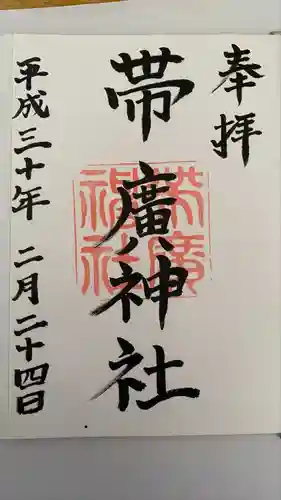 奉拝
帯廣神社
帯廣
神社
平成三十年 二月二十四日